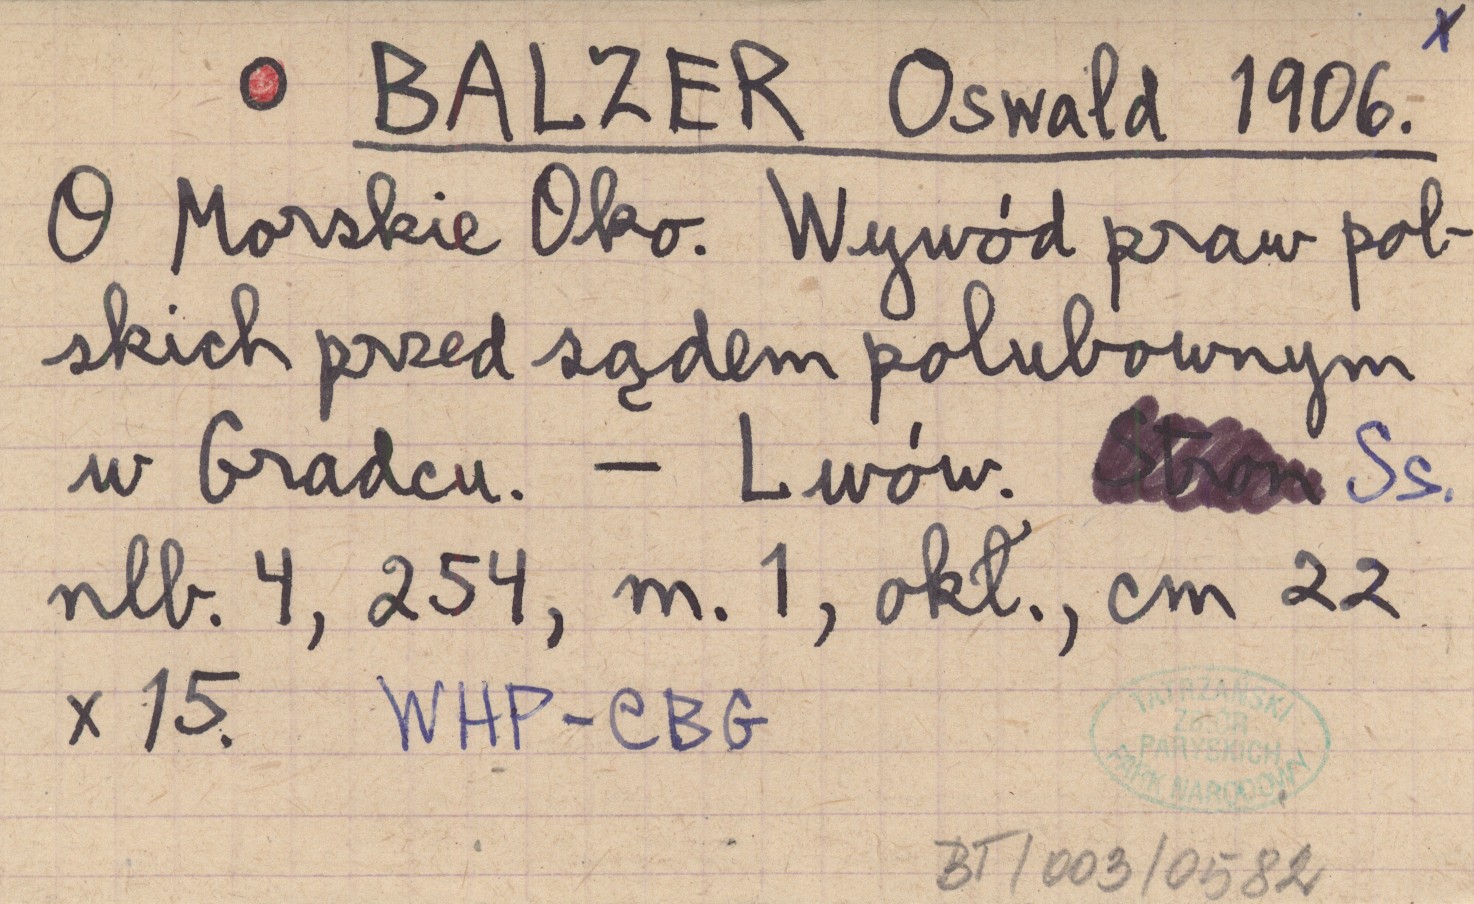 x
BALZER Oswald 1906.
O Morskie Oko. Wywód praw pol-
skich przed sądem polubownym
w Gradcu. — Lwów. Stron Ss.
nlb. 4, 254, m. 1, okł., cm 22
x 15. WHP-CBG
TATRZAŃSKI
ZBIÓR
PARYSKICH
PARK NARODOWY
BT/003/0582